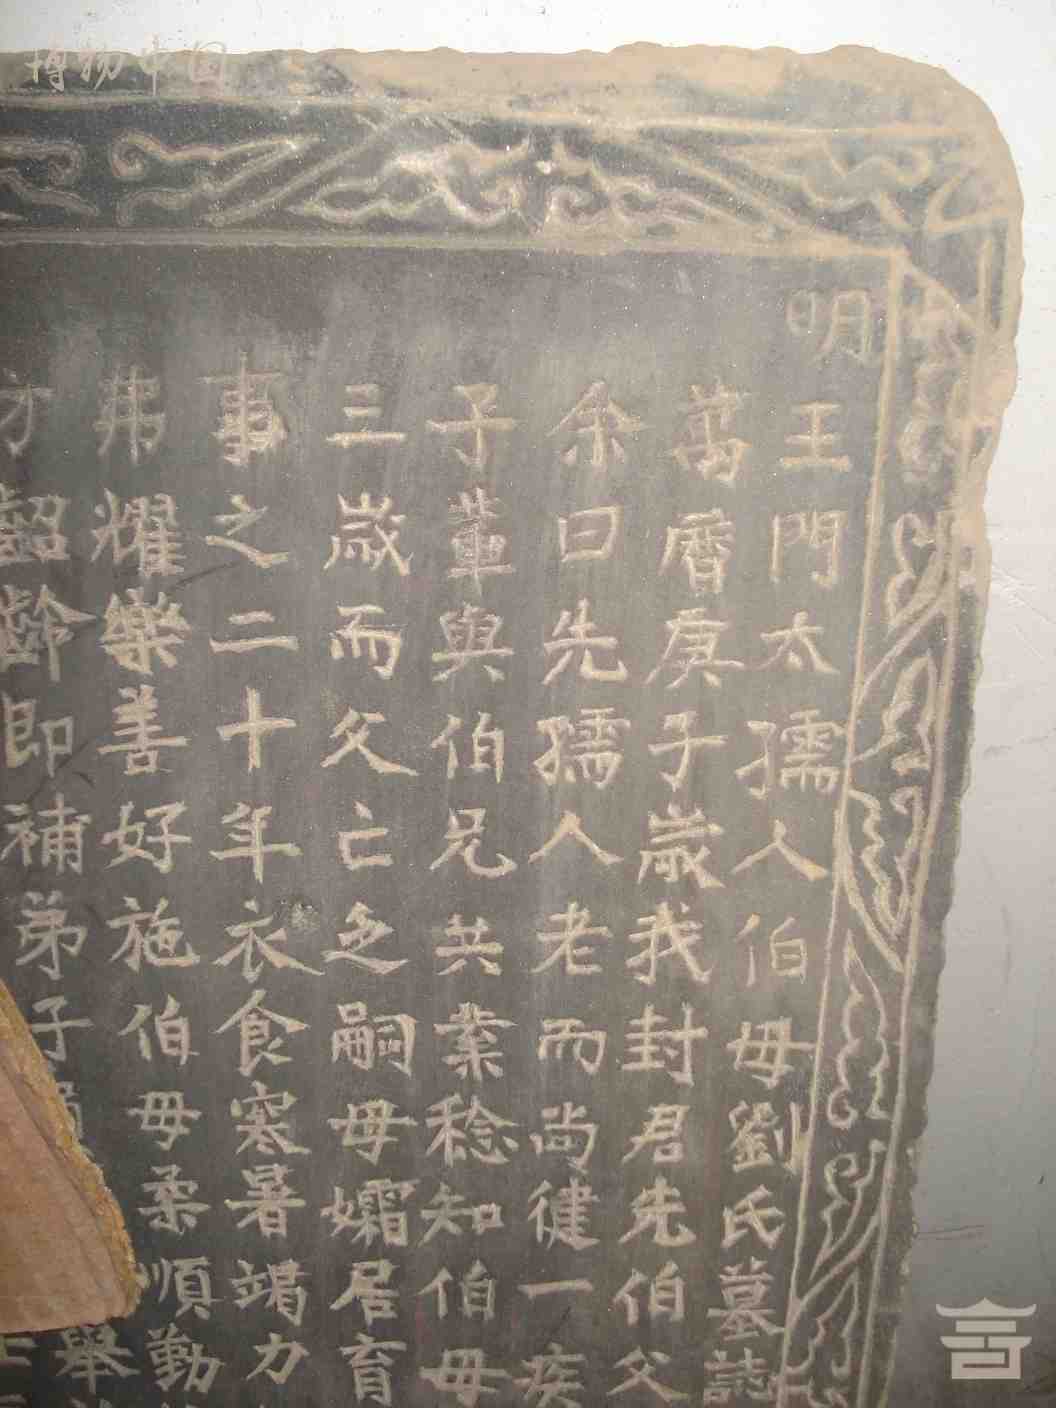 明王門太孺人伯母劉氏墓誌
萬曆庚子歲我封君先伯父
余曰先孺人老而尚健一疾
子輩與伯兄共業稔知伯母
三歲而父亡乏嗣母孀居育
事之二十年衣食寒暑竭力
弗耀樂善好施伯母柔順勤
方齠齡即補弟子
舉
博物中国